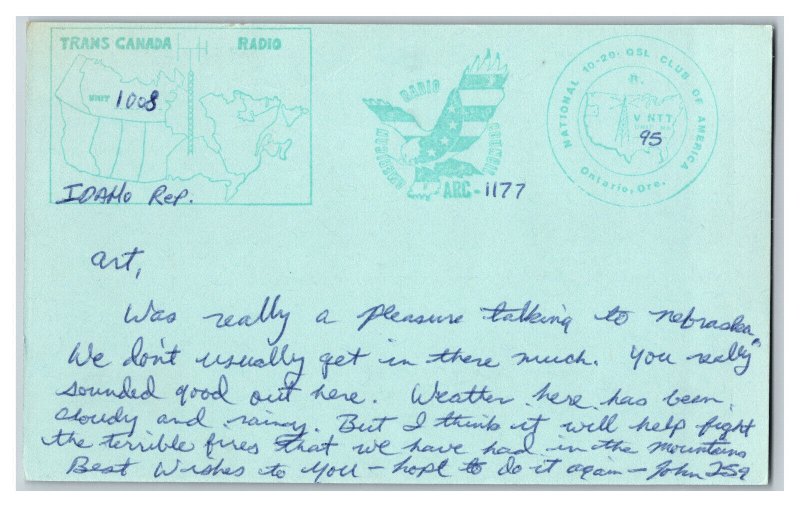 TRANS CANADA RADIO
UNIT 1008
IDAHO Rep.
AMERICAN RADIO COUNCIL
ARC - 1177
NATIONAL 10-20 QSL CLUB OF AMERICA
R.
V NTT
95
Ontario, Ore.
Art,
Was really a pleasure talking to Nebraska.
We don't usually get in there much. You really
sounded good out here. Weather here has been
cloudy and rainy. But I think it will help fight
the terrible fires that we have had in the mountains
Best Wishes to You - hope to do it again - John